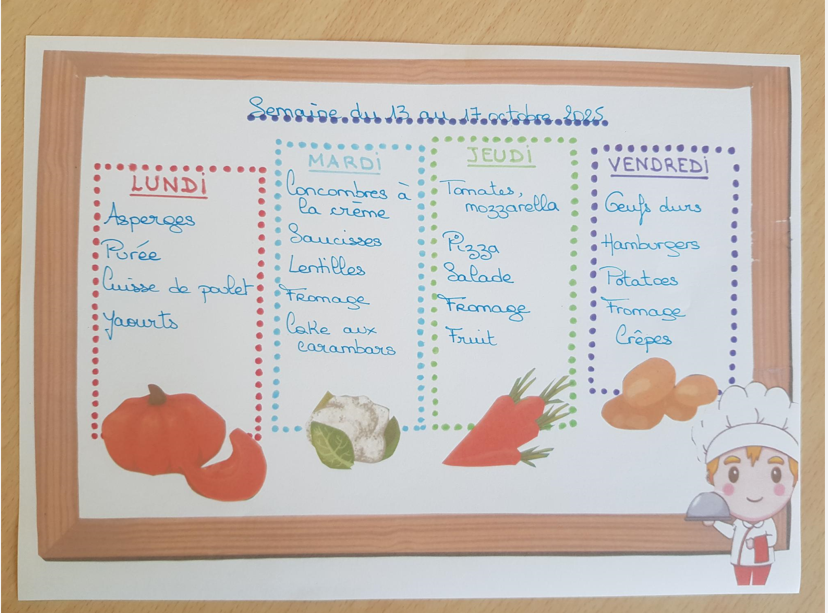 Semaine du 13 au 17 octobre 2025
LUNDI
Asperges
Purée
Cuisse de poulet
Yaourts
MARDI
Concombres à
la crème
Saucisses
Lentilles
Fromage
Cake aux
carambars
JEUDI
Tomates,
mozzarella
Pizza
Salade
Fromage
Fruit
VENDREDI
Oeufs durs
Hamburgers
Potatoes
Fromage
Crêpes